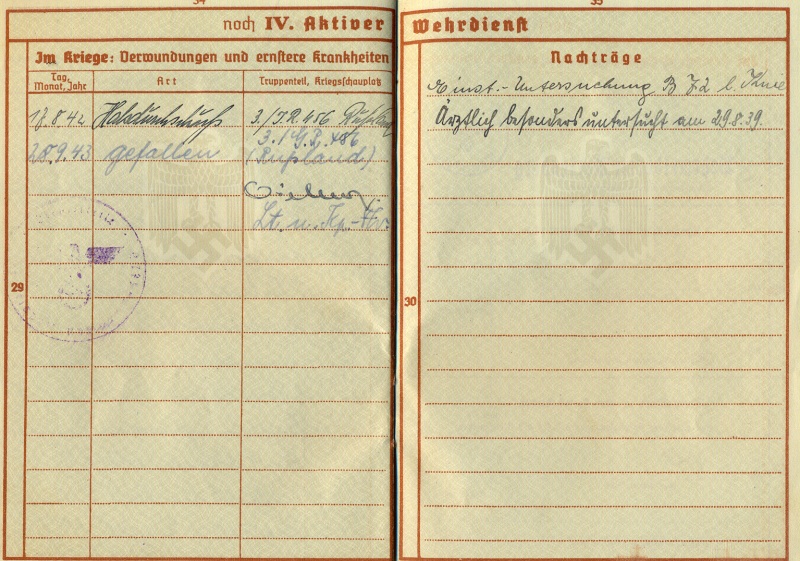 34
noch IV. Aktiver
Im Kriege: Verwundungen und ernstere Krankheiten
Tag, Monat, Jahr
Art
Truppenteil, Kriegsschauplatz
17.8.42 3./I.R. 456
28.9.43 gefallen 3./G.R. 456
(Rußland)
Lt. u. Kp.-Fhr.
29
35
Wehrdienst
Nachträge
Einst.-Untersuchung B 72 l. Knie
Ärztlich besonders untersucht am 29.8.39.
30